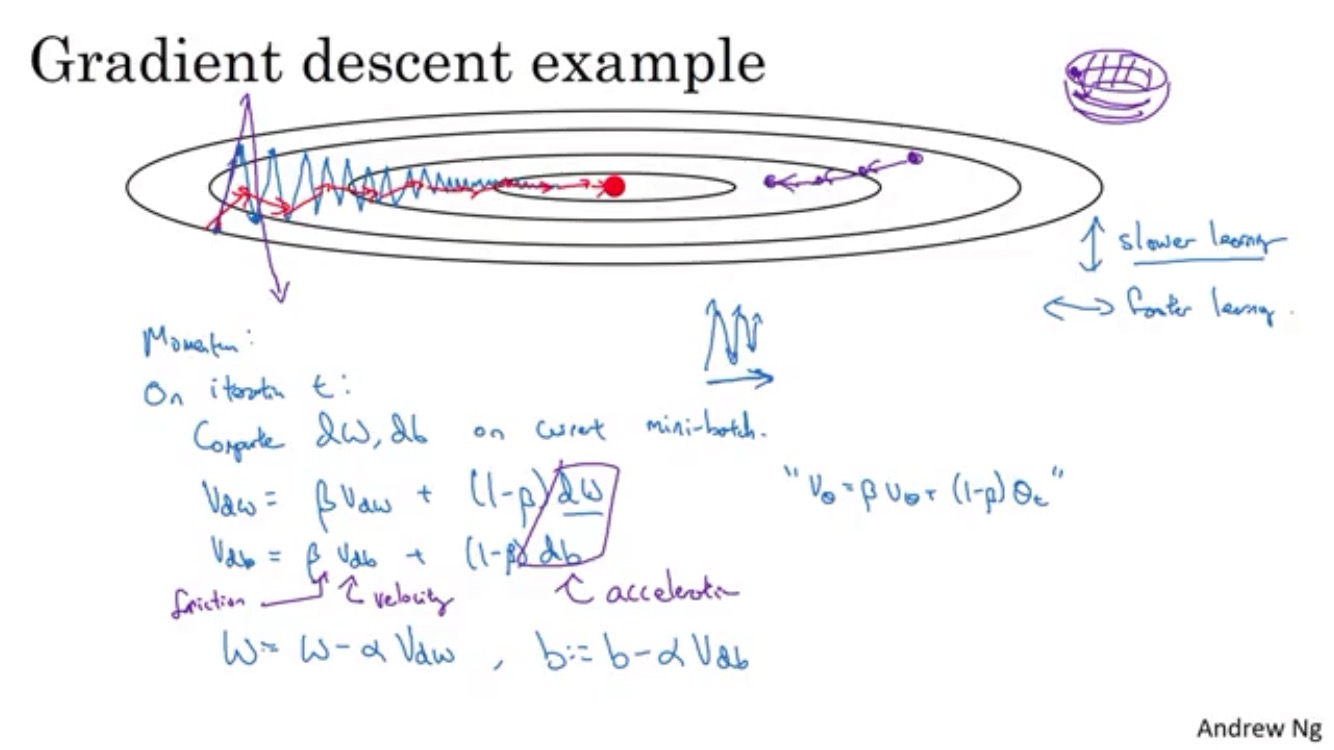 Gradient descent example
slower learning
faster learning.
Momentum:
On iteration t:
Compute dW, db on current mini-batch.
Vdw = βVdw + (1-β)dW
"Vθ = βVθ + (1-β)θt"
Vdb = βVdb + (1-β)db
friction velocity acceleration
W = W - αVdw , b := b - αVdb
Andrew Ng